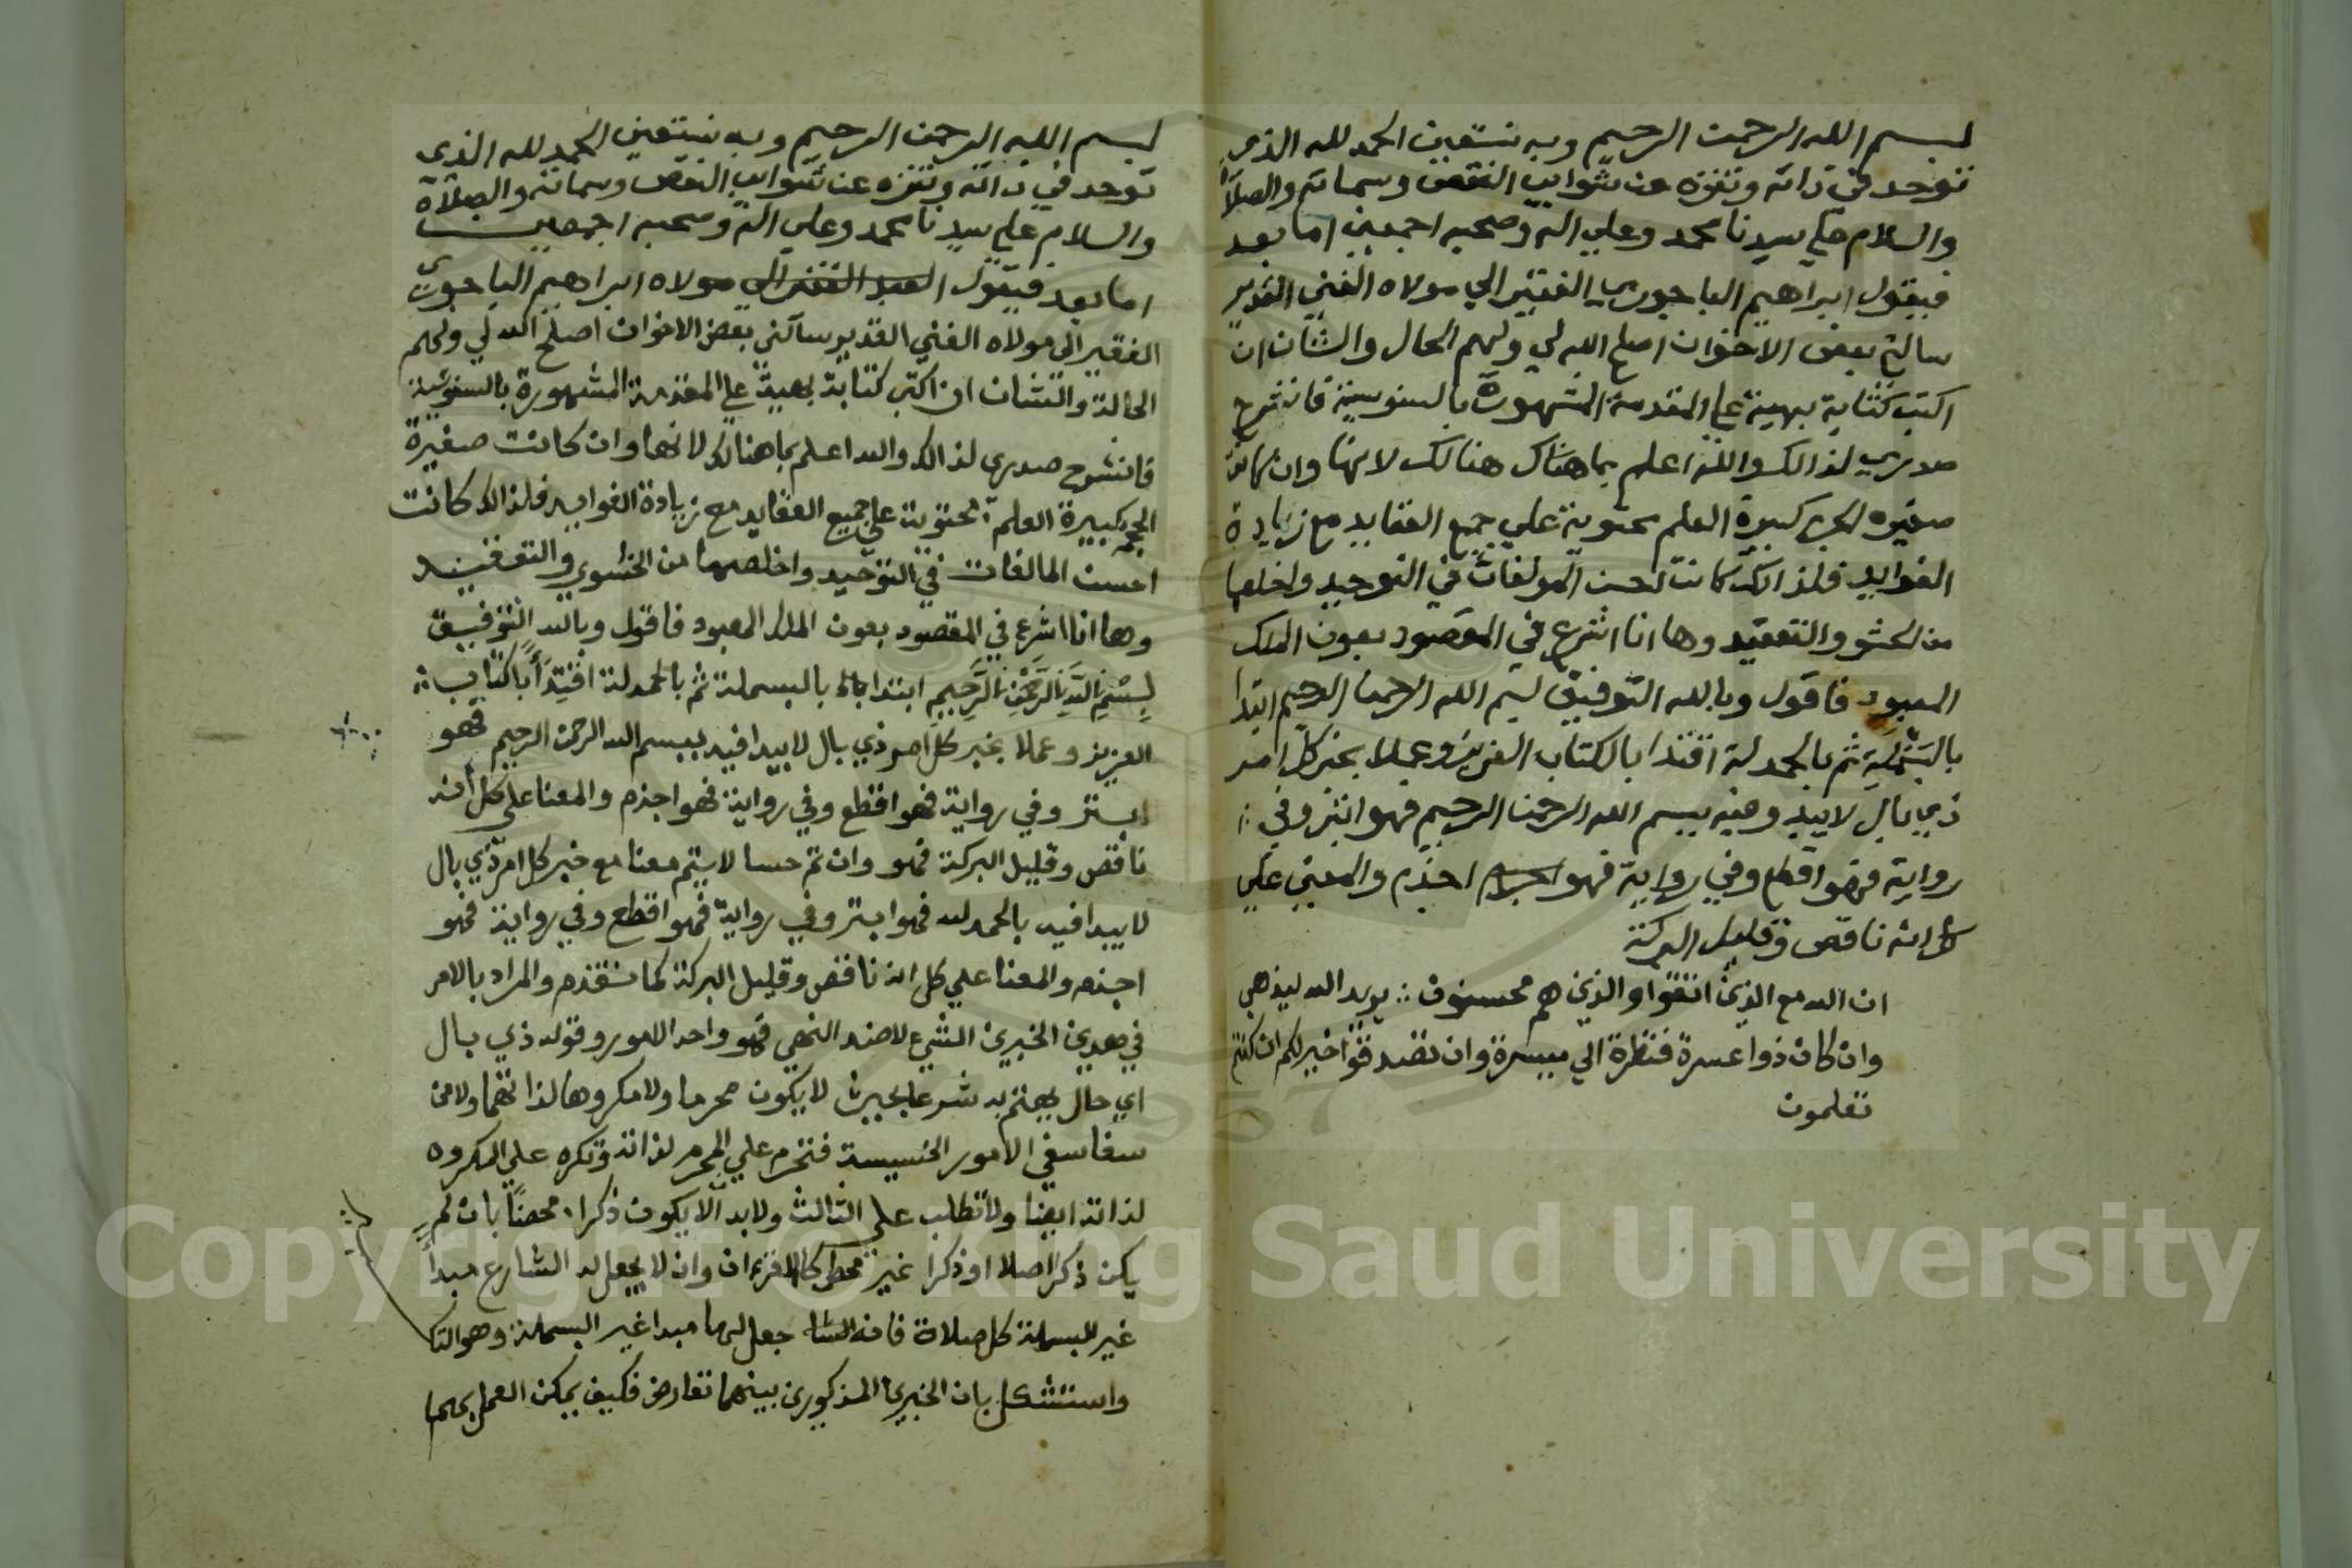 بسم الله الرحمن الرحيم وبه نستعين الحمد لله الذي
توحد في ذاته وتنزه عن شوايب النقص وسماته والصلاة
والسلام علي سيدنا محمد وعلي اله وصحبه اجمعين اما بعد
فيقول ابراهيم الباجوري الفقير الي مولاه الغني القدير
سالني بعض الاخوان اصلح الله لي ولهم الحال والشان ان
اكتب كتابة بهية علي المقدمة المشهورة بالسنوسية فانشرح
صدري لذالك والله اعلم بما هناك هنالك لانها وان كانت
صغيره الحجم كبيرة العلم محتوية علي جميع العقايد مع زيادة
الفوايد فلذالك كانت احسن المولفات في التوحيد واخلصها
من الحشو والتعقيد وها انا اشرع في المقصود بعون الملك
المعبود فاقول وبالله التوفيق بسم الله الرحمن الرحيم ابتدا
بالبسملة ثم بالحمدلة اقتدا بالكتاب العزيز وعملا بخبر كل امر
ذي بال لا يبدو فيه ببسم الله الرحمن الرحيم فهو ابتر وفي
رواية فهو اقطع وفي رواية فهو اجذم والمعني علي
كل انه ناقص وقليل البركة
ان الله مع الذين اتقوا والذين هم محسنون يريد الله ليذهب
وان كان ذوا عسرة فنظرة الي ميسرة وان تصدقوا خير لكم ان كنتم
تعلمون
بسم الله الرحمن الرحيم وبه نستعين الحمد لله الذي
توحد في ذاته وتنزه عن شوايب النقص وسماته والصلاة
والسلام علي سيدنا محمد وعلي اله وصحبه اجمعين
اما بعد فيقول العبد الفقير الي مولاه ابراهيم الباجوري
الفقير الي مولاه الغني القدير سالني بعض الاخوان اصلح الله لي ولهم
الحالة والشان ان اكتب كتابة بهية علي المقدمة المشهورة بالسنوسية
فانشرح صدري لذالك والله اعلم بما هنالك لانها وان كانت صغيرة
الحجم كبيرة العلم محتوية علي جميع العقايد مع زيادة الفوايد فلذالك كانت
احسن المالفات في التوحيد واخلصها من الحشوي والتعقيد
وها انا اشرع في المقصود بعون الملك المعبود فاقول وبالله التوفيق
بسم الله الرحمن الرحيم ابتدا بالبسملة ثم بالحمدلة اقتدأ بالكتاب
العزيز وعملا بخبر كل امر ذي بال لا يبدا فيه ببسم الله الرحمن الرحيم فهو
ابتر وفي رواية فهو اقطع وفي رواية فهو اجذم والمعنا علي كل انه
ناقص وقليل البركة فهو وان تم حسا لا يتم معنا مع خبر كل امر ذي بال
لا يبدا فيه بالحمد لله فهو ابتر وفي رواية فهو اقطع وفي رواية فهو
اجذم والمعنا علي كل انه ناقص وقليل البركة كما تقدم والمراد بالامر
في هدين الخبرين الشيء لا ضد النهي فهو واحد الامور وقوله ذي بال
اي حال يهتم به شرعا بحيث لا يكون محرما ولا مكروها لذاتهما ولا من
سفاسف الامور الخسيسة فتحرم علي المحرم لذاته وتكره علي المكروه
لذاته ايضا ولا تطلب علي الثالث ولا بد الا يكون ذكرا محضا بان لم
يكن ذكرا اصلا او ذكرا غير محض كالقران وان لا يجعل له الشارع مبدأ
غير البسملة كل صلاة فانه جعل لها مبدا غير البسملة وهو التك
واستشكل بان الخبرين المذكورين بينهما تعارض فكيف يمكن العمل بهما
Copyright © King Saud University
1957